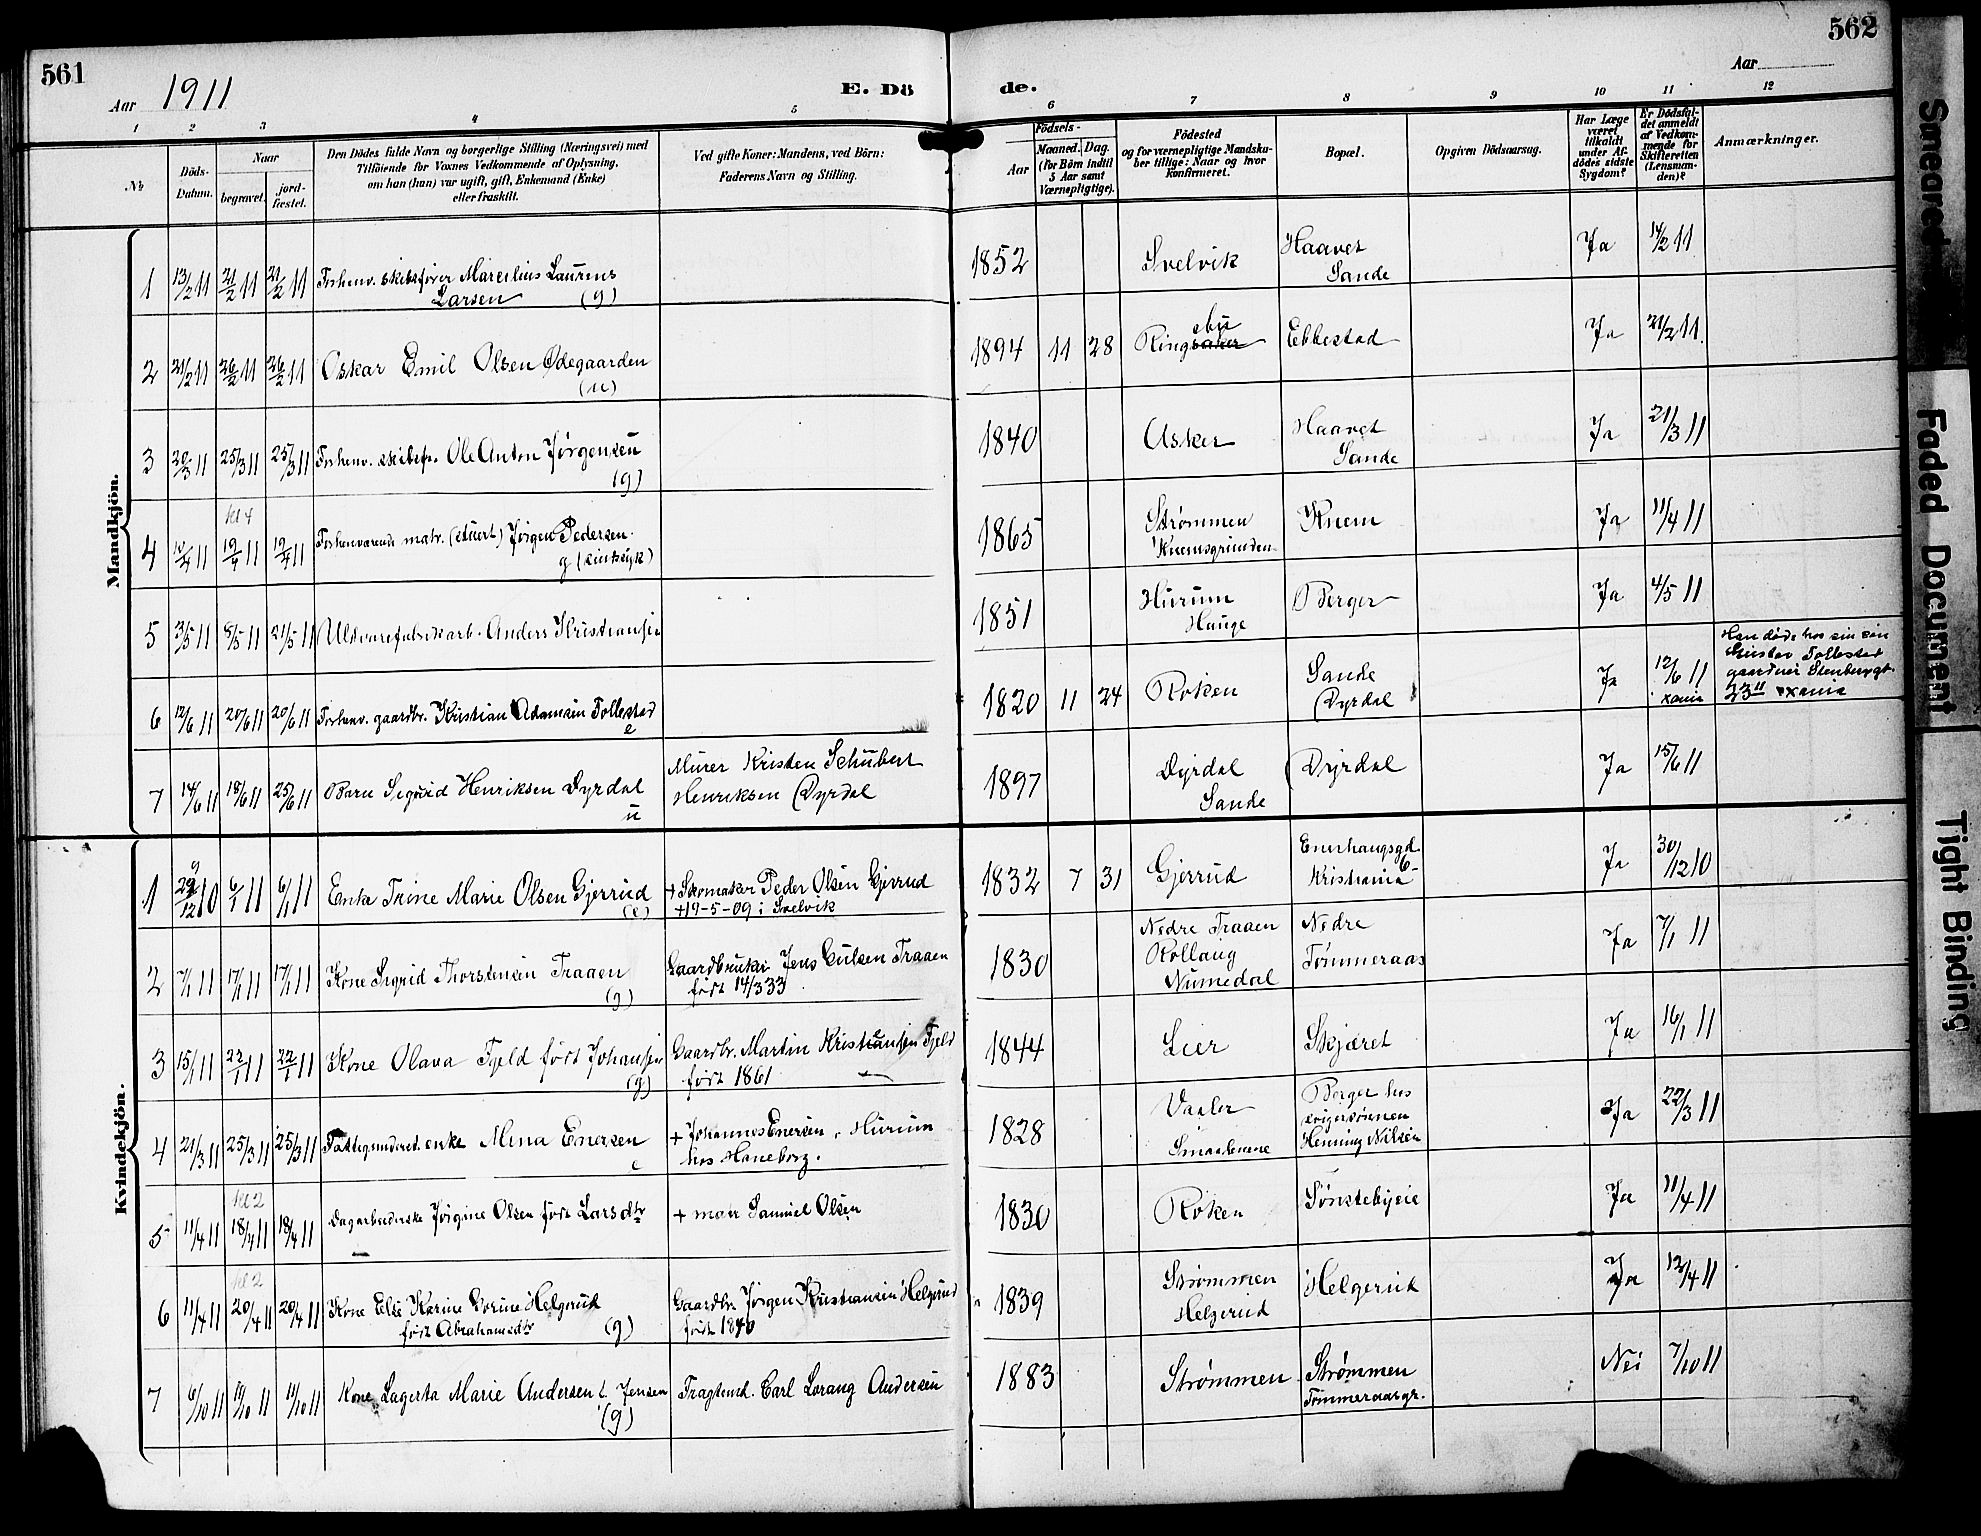 561
Aar 1911
E. Dö
de.
562
Aar
1 2 3 4 5 6 7 8 9 10 11 12
No
Döds-Datum.
Naar
begravet.
jord-fæstet.
Den Dödes fulde Navn og borgerlige Stilling (Næringsvei) med
Tilföiende for Voxnes Vedkommende af Oplysning,
om han (hun) var ugift, gift, Enkemand (Enke)
eller fraskilt.
Ved gifte Koner: Mandens, ved Börn:
Faderens Navn og Stilling.
Födsels-
Aar
Maaned. Dag.
(for Börn indtil
5 Aar samt
Værnepligtige).
Födested
og for værnepligtige Mandsku-
ber tillige: Naar og hvor
Konfirmeret.
Bopæl.
Opgiven Dödsaarsag.
Har Læge
været
tilkaldt
under Af-
dödes sidste
Sygdom?
Er Dödsfal-
det anmeldt
af Vedkom-
mende for
Skifteretten
(Lensman-
den)?
Anmærkninger.
Mandkjön.
1 13/2 11 21/2 11 21/2 11 Forhenv. skibsfører Marcilius Laurens
Larsen (g)
1852 Svelvik Haavet
Sande
Ja 14/2 11
2 21/2 11 26/2 11 26/2 11 Oskar Emil Olsen Ødegaarden
(u)
1894 11 28 Ringsaker ebu Ebbestad Ja 21/2 11
3 20/3 11 25/3 11 25/3 11 Forhenv. skibsf. Ole Anton Jørgensen
(g)
1840 Asker Haavet
Sande
Ja 21/3 11
kl 4
4 11 19/4 11 19/4 11 Forhenværende matr. (stuert) Jørgen Pedersen
g (sindssyk)
1865 Strømmen
Knemsgrunden
Knem Ja 11/4 11
5 3/5 11 8/5 11 21/5 11 Uldvarefabrikarb. Anders Kristiansen
1851 Hurum
Hauge
Berger Ja 4/5 11
6 12/6 11 20/6 11 20/6 11 Forhenv. gaardbr. Kristian Adamsen Follestad
e
1820 11 24 Røken Sande
Dyrdal
Ja 12/6 11
xania
Han døde hos sin søn
Gustav Follestad
gaardeier Stenbergt.
23 II xania
7 14/6 11 18/6 11 25/6 11 Barn Sigurd Henriksen Dyrdal
u
Murer Kristen Schubert
Henriksen Dyrdal
1897 Dyrdal
Sande
Dyrdal Ja 15/6 11
Kvindekjön.
1 29/12 10 6/1 11 6/1 11 Enke Trine Marie Olsen Gjerrud
(e)
+ Skomaker Peder Olsen Gjerrud
+19-5-09 i Svelvik
1832 7 31 Gjerrud Enerhaugsgd
6
Kristiania
Ja 30/12 10
2 7/1 11 17/1 11 17/1 11 Kone Sigrid Thorstensen Traaen
(g)
Gaardbruker Jens Traaen
født 14/3 33
1830 Nedre Traaen
Rollaug
Numedal
Nedre
Tømmeraas
Ja 7/1 11
3 15/1 11 22/1 11 22/1 11 Kone Olava Fjeld født Johansen
(g)
Gaardbr. Martin Kristiansen Fjeld
født 1861
1844 Lier Skjæret Ja 16/1 11
4 21/3 11 25/3 11 25/3 11 Fattigunderst. enke Mina Enersen
e
+ Johannes Enersen, Hurum
hos Haneborg.
1828 Vaaler
Smaalenene
Berger hos
svigersønnen
Henning Nilsen
Ja 22/3 11
kl 2
5 11/4 11 18/4 11 18/4 11 Dagarbeiderske Jørgine Olsen født Larsdtr
+ matr Samuel Olsen
1830 Røken Sønstebyeie Ja 11/4 11
kl 2
6 11/4 11 20/4 11 20/4 11 Kone Else Karine Dorine Helgerud
født Abrahamsdtr (g)
Gaardbr. Jørgen Kristiansen Helgerud
født 1840
1839 Strømmen
Helgerud
Helgerud Ja 12/4 11
7 6/10 11 11/10 11 11/10 11 Kone Lagerta Marie Andersen f. Jensen
(g)
Fragtemd. Carl Lorang Andersen
1883 Strømmen Strømmen
Tømmeraasgr.
Nei 7/10 11
Smeared
Faded Document
Tight Binding